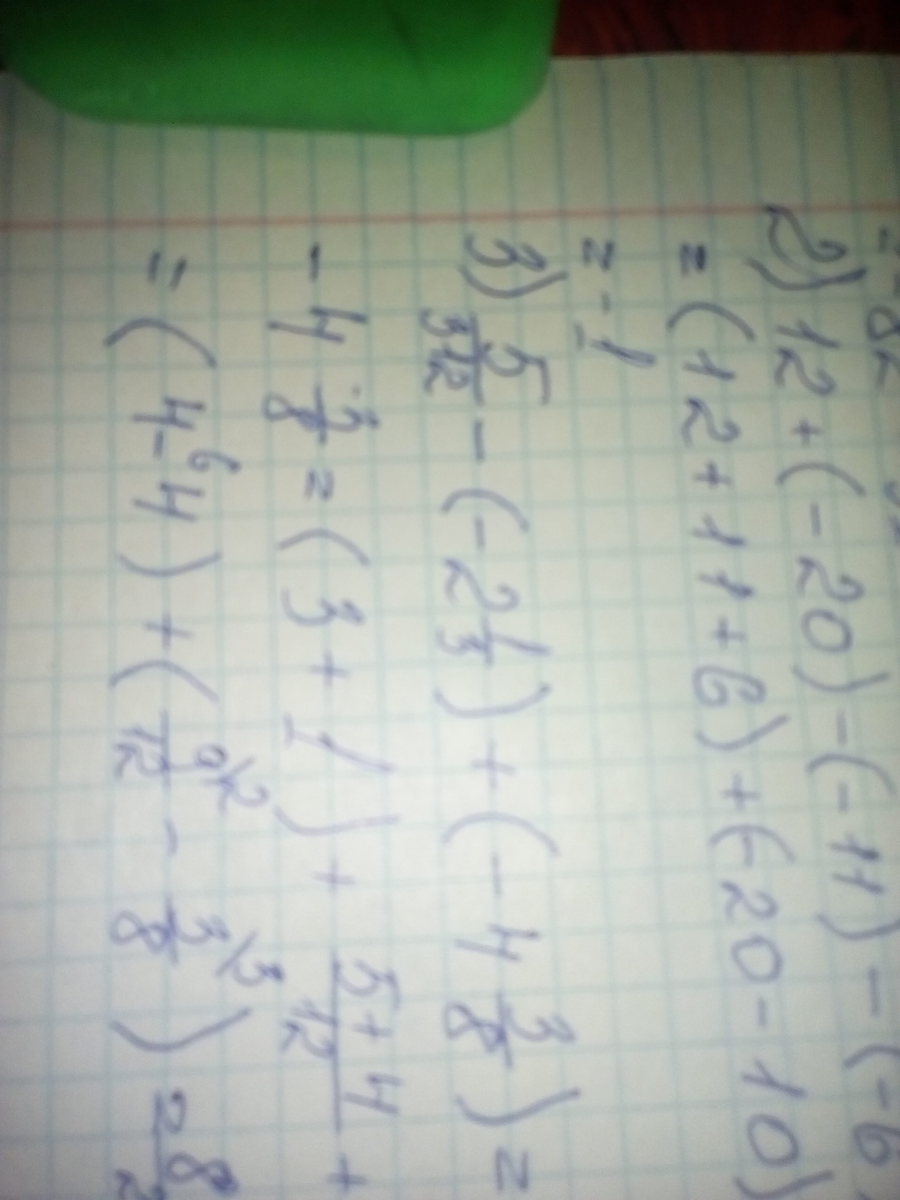 2) 12 + (- 20) - (- 11) - (- 6
= (12 + 11 + 6) + (-20 - 10)
= - 1
3) 3 5/12 - (- 2 1/3) + (- 4 3/8) =
- 4 3/8 = (3 + 1) + 5 + 4/12 +
= ( 4 - 4 ) + ( 9\2/12 - 3\3/8 )